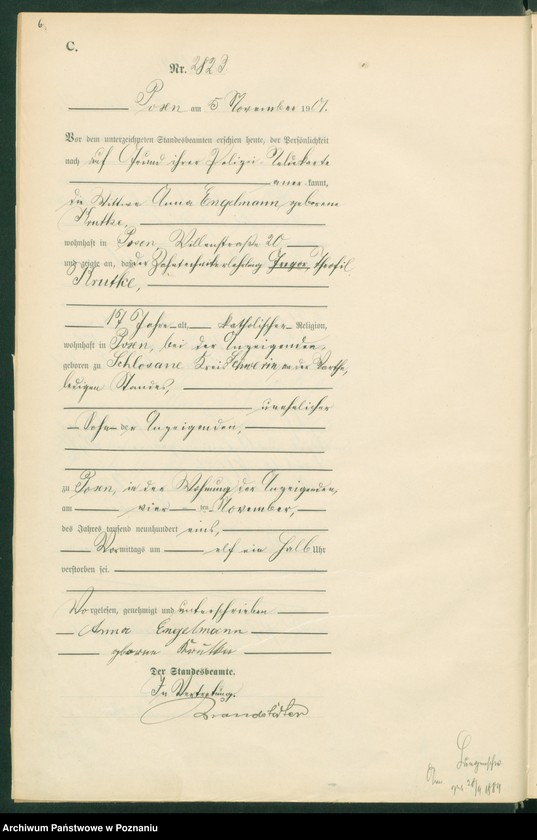 6.
C.
Nr. 2823
Posen am 5 November 1901.
Vor dem unterzeichneten Standesbeamten erschien heute, der Persönlichkeit
nach auf Grund ihrer Polizei-Meldekarte
anerkannt,
die Wittwe Anna Engelmann geborene
Krutke,
wohnhaft in Posen,
und zeigte an, daß der Theofil
Krutke,
17 Jahre alt, katholischer Religion,
wohnhaft in Posen, bei der Anzeigenden,
geboren zu Kreis Schwerin an der Warthe,
ledigen Standes,
unehelicher
Sohn der Anzeigenden,
zu Posen, in der Wohnung der Anzeigenden,
am vier ten November,
des Jahres tausend neunhundert eins,
Vormittags um elf ein halb Uhr
verstorben sei.
Vorgelesen, genehmigt und unterschrieben
Anna Engelmann
geborne Krutke
Der Standesbeamte.
In Vertretung.
Archiwum Państwowe w Poznaniu